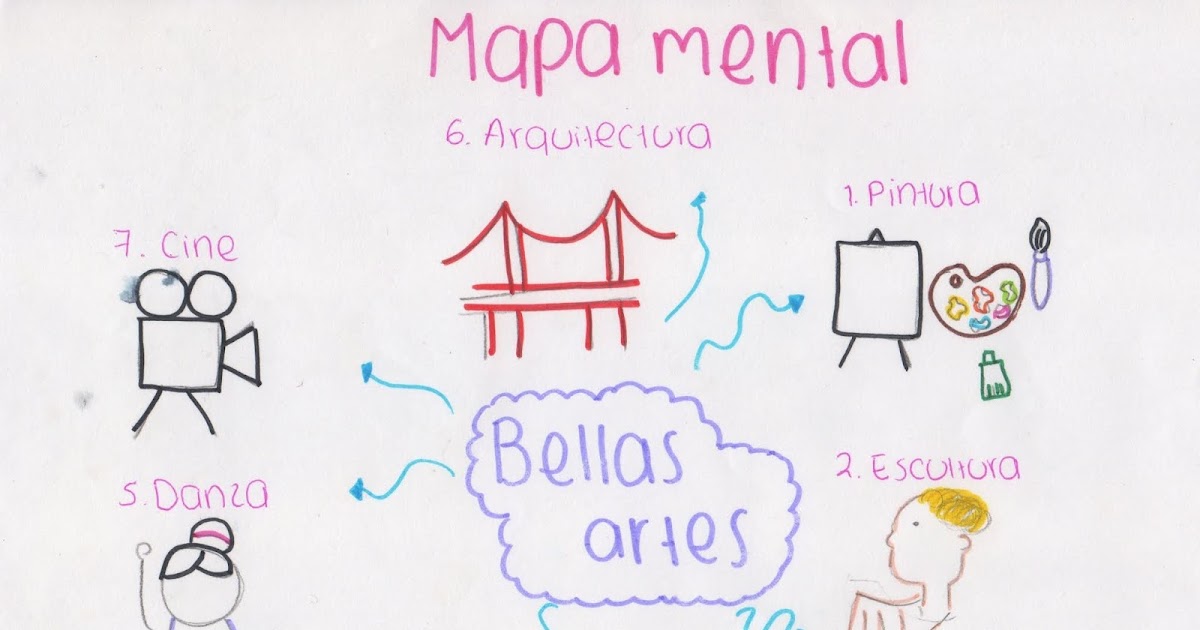 Mapa mental
6. Arquitectura
1. Pintura
7. Cine
Bellas
artes
2. Escultura
5. Danza